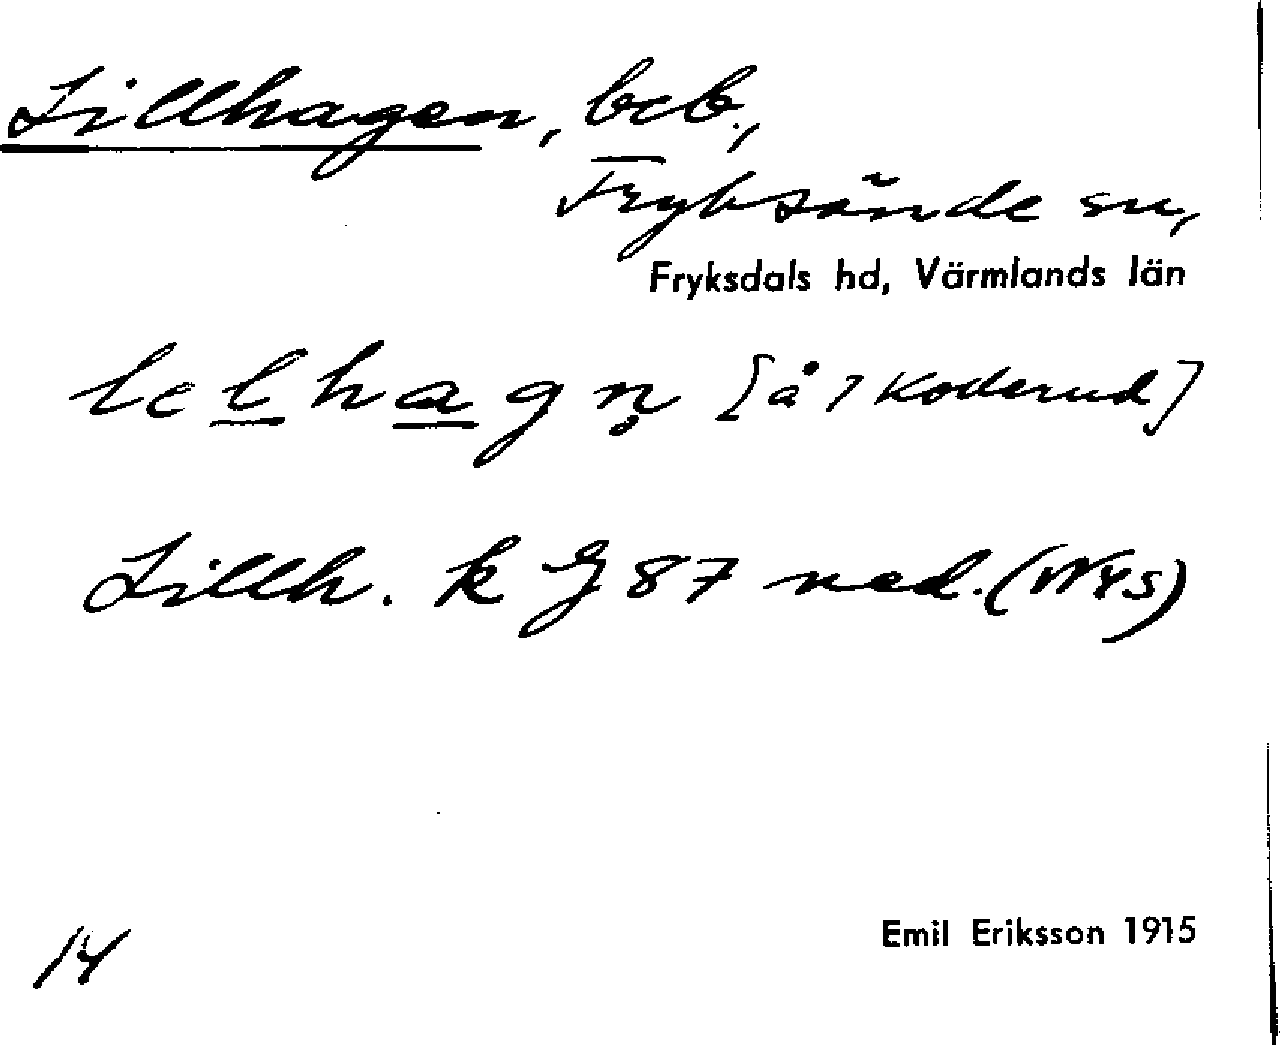 Lillhagen, beb.,
Fryksände sn,
Fryksdals hd, Värmlands län
lelhagn̥ [å 7 Kollerud]
Lillh. k G 87 ned. (NVs)
14
Emil Eriksson 1915